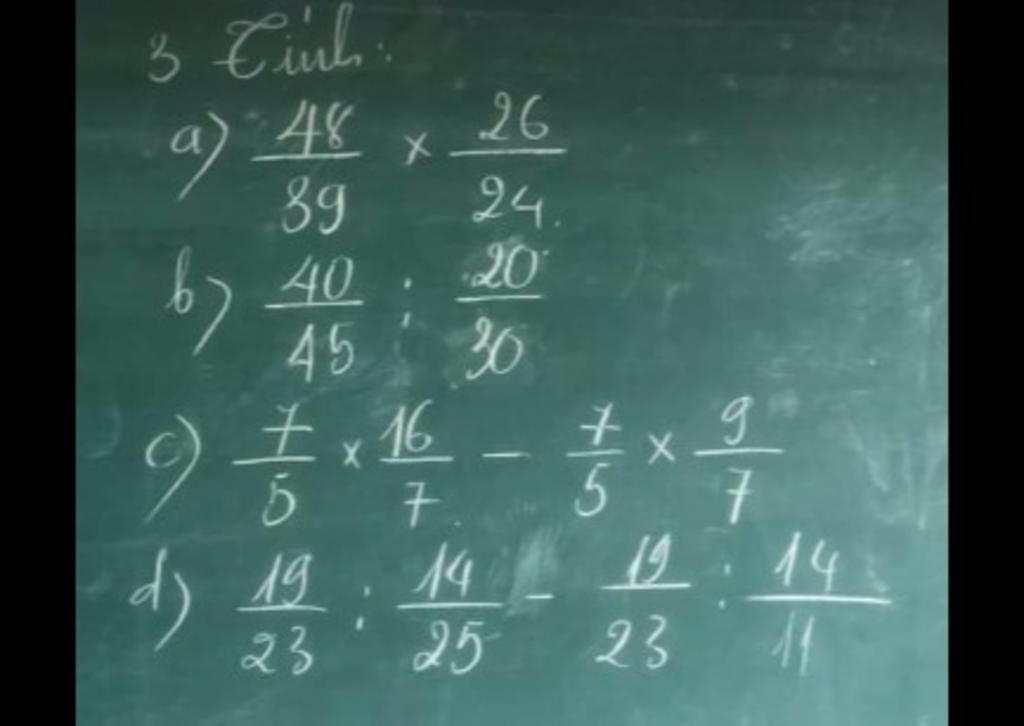 3 Tính:
a) 48/39 × 26/24
b) 40/45 : 20/30
c) 7/5 × 16/7 - 7/5 × 9/7
d) 19/23 : 14/25 - 19/23 : 14/11